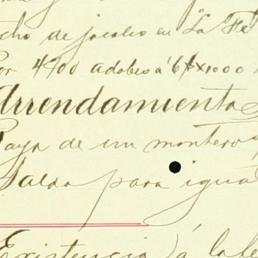 cho de jacales en "La Fe
Por 4900 adobes á 6 x 1000
Arrendamientos
Raya de un montero
Salda para igua
Existencia á la fe